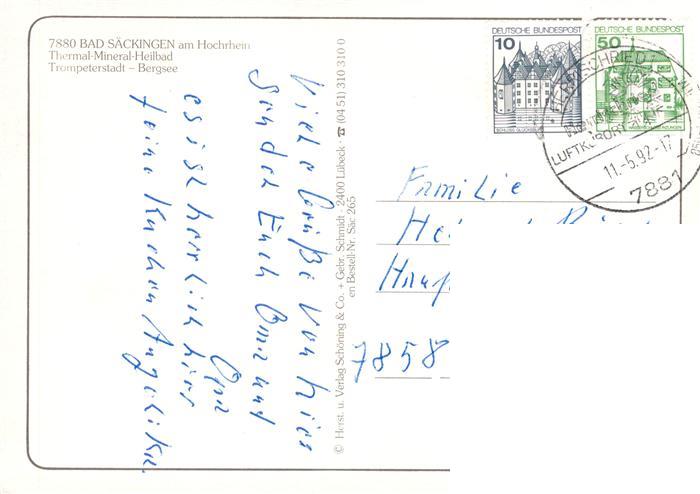 7880 BAD SÄCKINGEN am Hochrhein
Thermal-Mineral-Heilbad
Trompeterstadt – Bergsee
Viele Grüße von hier
senden Euch Oma und
Opa
es ist herrlich hier
feine Kuchen Angelika
© Herst. u. Verlag Schöning & Co. + Gebr. Schmidt · 2400 Lübeck · ☎ (04 51) 310 310 0
en Bestell-Nr. Säc 265
10 DEUTSCHE BUNDESPOST
SCHLOSS GLÜCKSBURG
50 DEUTSCHE BUNDESPOST
LUFTKURORT
11.-5.92-17
7881
Familie
7858